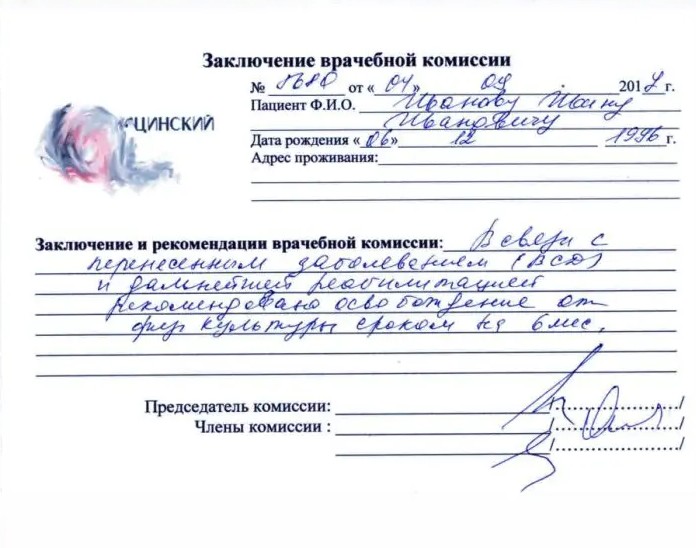 Заключение врачебной комиссии
№ 8680 от « 04 » 09 . 2017 г.
ЦИНСКИЙ
Пациент Ф.И.О. Иванову Ивану
Ивановичу
Дата рождения « 06 » 12 1996 г.
Адрес проживания:
Заключение и рекомендации врачебной комиссии: В связи с
перенесенным заболеванием (ВСД)
и дальнейшей реабилитацией
рекомендовано освобождение от
физ культуры сроком на 6 мес.
Председатель комиссии: / /
Члены комиссии : / /
/ /